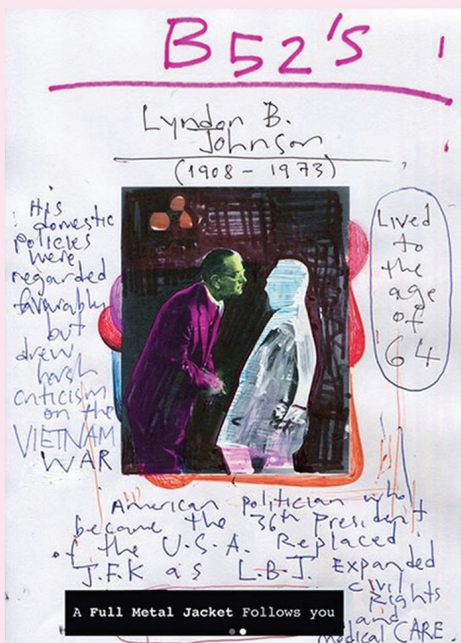 B52's
Lyndon B.
Johnson
(1908 - 1973)
His
domestic
policies
were
regarded
favorably
but
drew
harsh
criticism
on the
VIETNAM
WAR
Lived
to
the
age
of
64
American politician who
became the 36th President
of the U.S.A. Replaced
J.F.K as L.B.J. Expanded
civil
Rights
and
medical CARE
A Full Metal Jacket Follows you